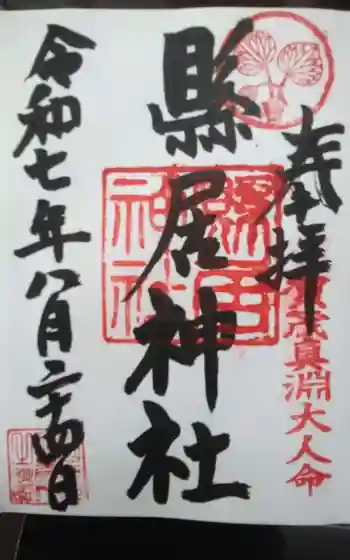 奉拝
賀茂真淵大人命
縣居神社
縣居神社
令和七年八月二十四日